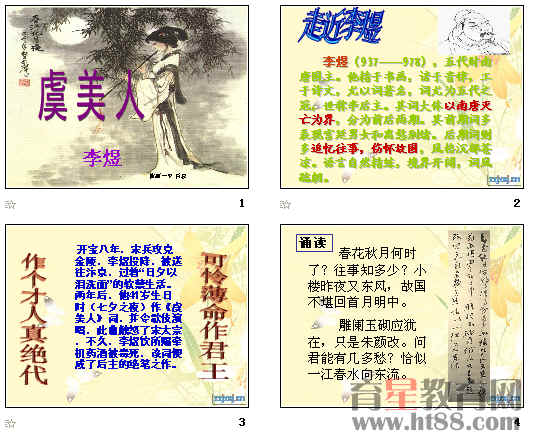 虞美人
李煜
1
走近李煜
李煜（937——978），五代时南
唐国主。他精于书画，谙于音律，工
于诗文，尤以词著名，词尤为五代之
冠。世称李后主。其词大体以南唐灭
亡为界，分为前后两期，其前期词多
表现宫廷男女和离愁别绪。后期词则
多追忆往事，伤怀故国，风格沉郁苍
凉。语言自然精炼，境界开阔，词风
zxjxj.cn
2
作个才人真绝代
开宝八年，宋兵攻克
金陵，李煜投降，被送
往汴京，过着“日夕以
泪洗面”的软禁生活。
两年后，他41岁生日
时（七夕之夜）作《虞
美人》词，并令歌伎演
唱，此曲触怒了宋太宗
，不久，李煜饮所赐牵
机药酒被毒死，该词便
成了后主的绝笔之作。
可怜薄命作君王
zxjxj.cn
3
诵读
春花秋月何时
了？往事知多少？小
楼昨夜又东风，故国
不堪回首月明中。
雕阑玉砌应犹
在，只是朱颜改。问
君能有几多愁？恰似
一江春水向东流。
4
育星教育网
www.ht88.com